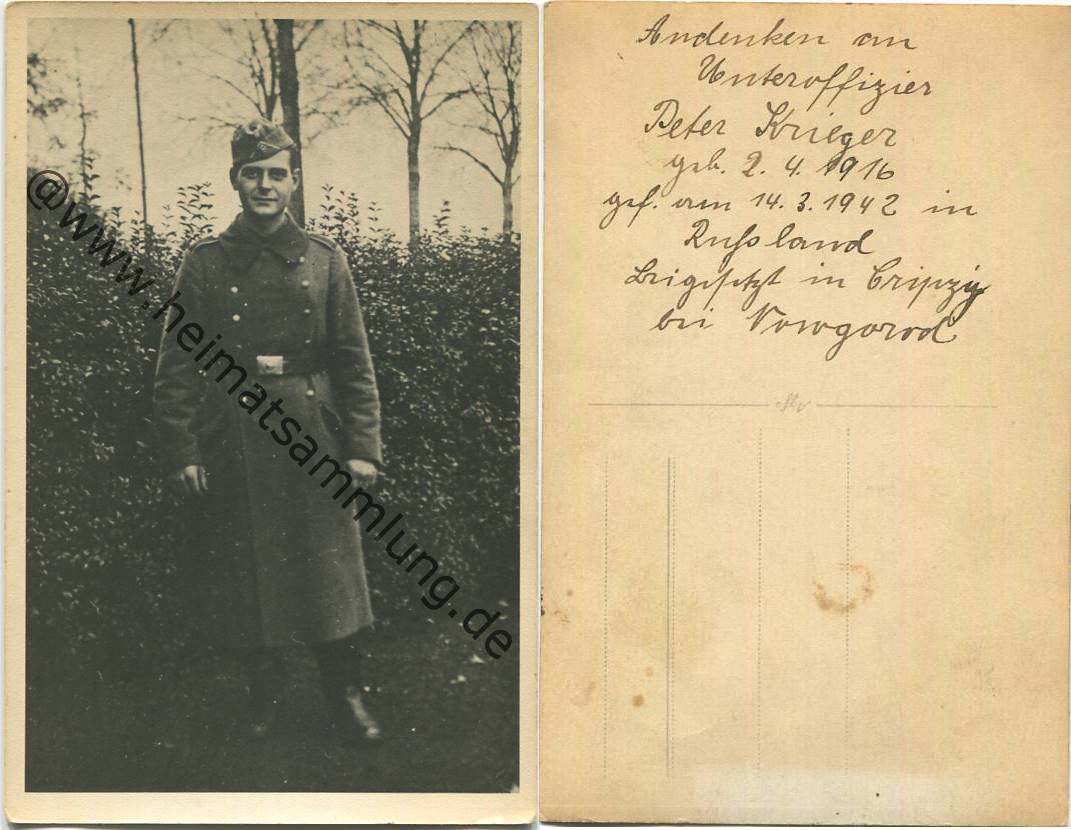 @www.heimatsammlung.de
Andenken an
Unteroffizier
Peter Krieger
geb. 2. 4. 1916
gef. am 14. 3. 1942 in
Rußland
beigesetzt in
bei Nowgorod